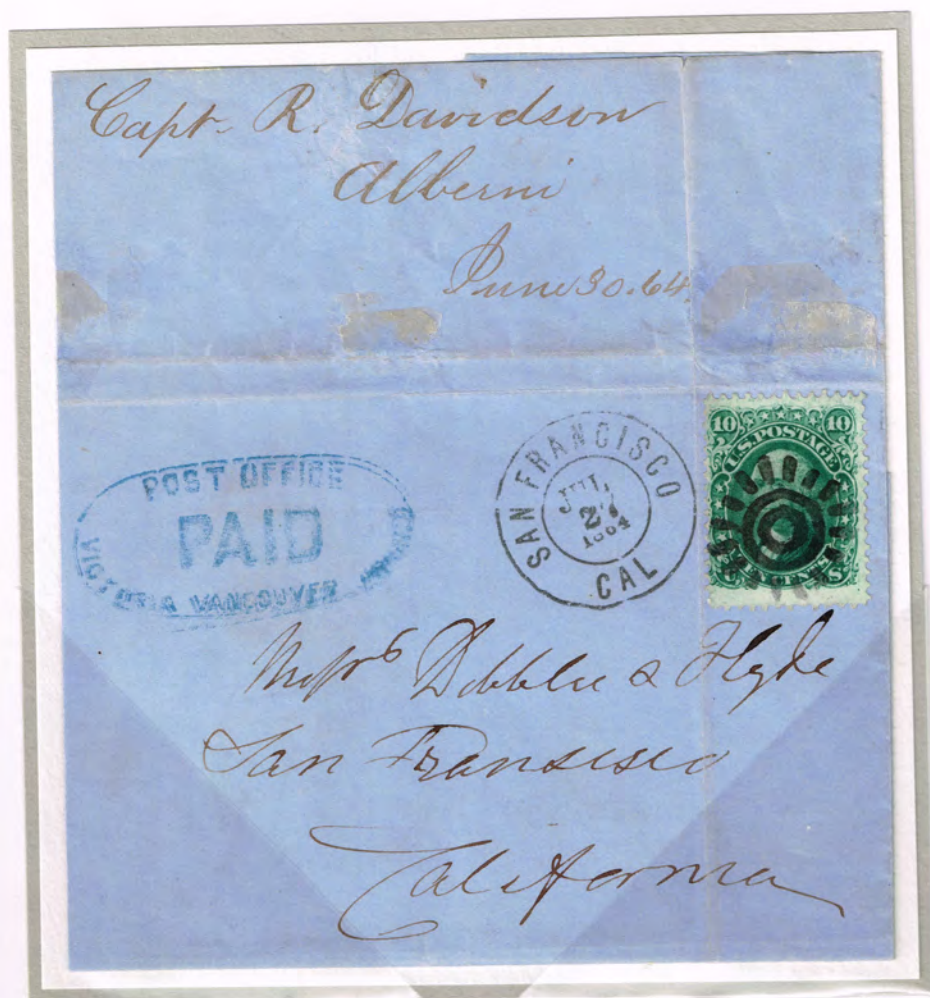 Capt. R. Davidson
Alberni
June 30.64
POST OFFICE
PAID
VICTORIA VANCOUVER
SAN FRANCISCO
JUL
27
1864
CAL
10 10
U.S. POSTAGE
TEN CENTS
U S
Messrs Dibblee & Hyde
San Fransisco
California